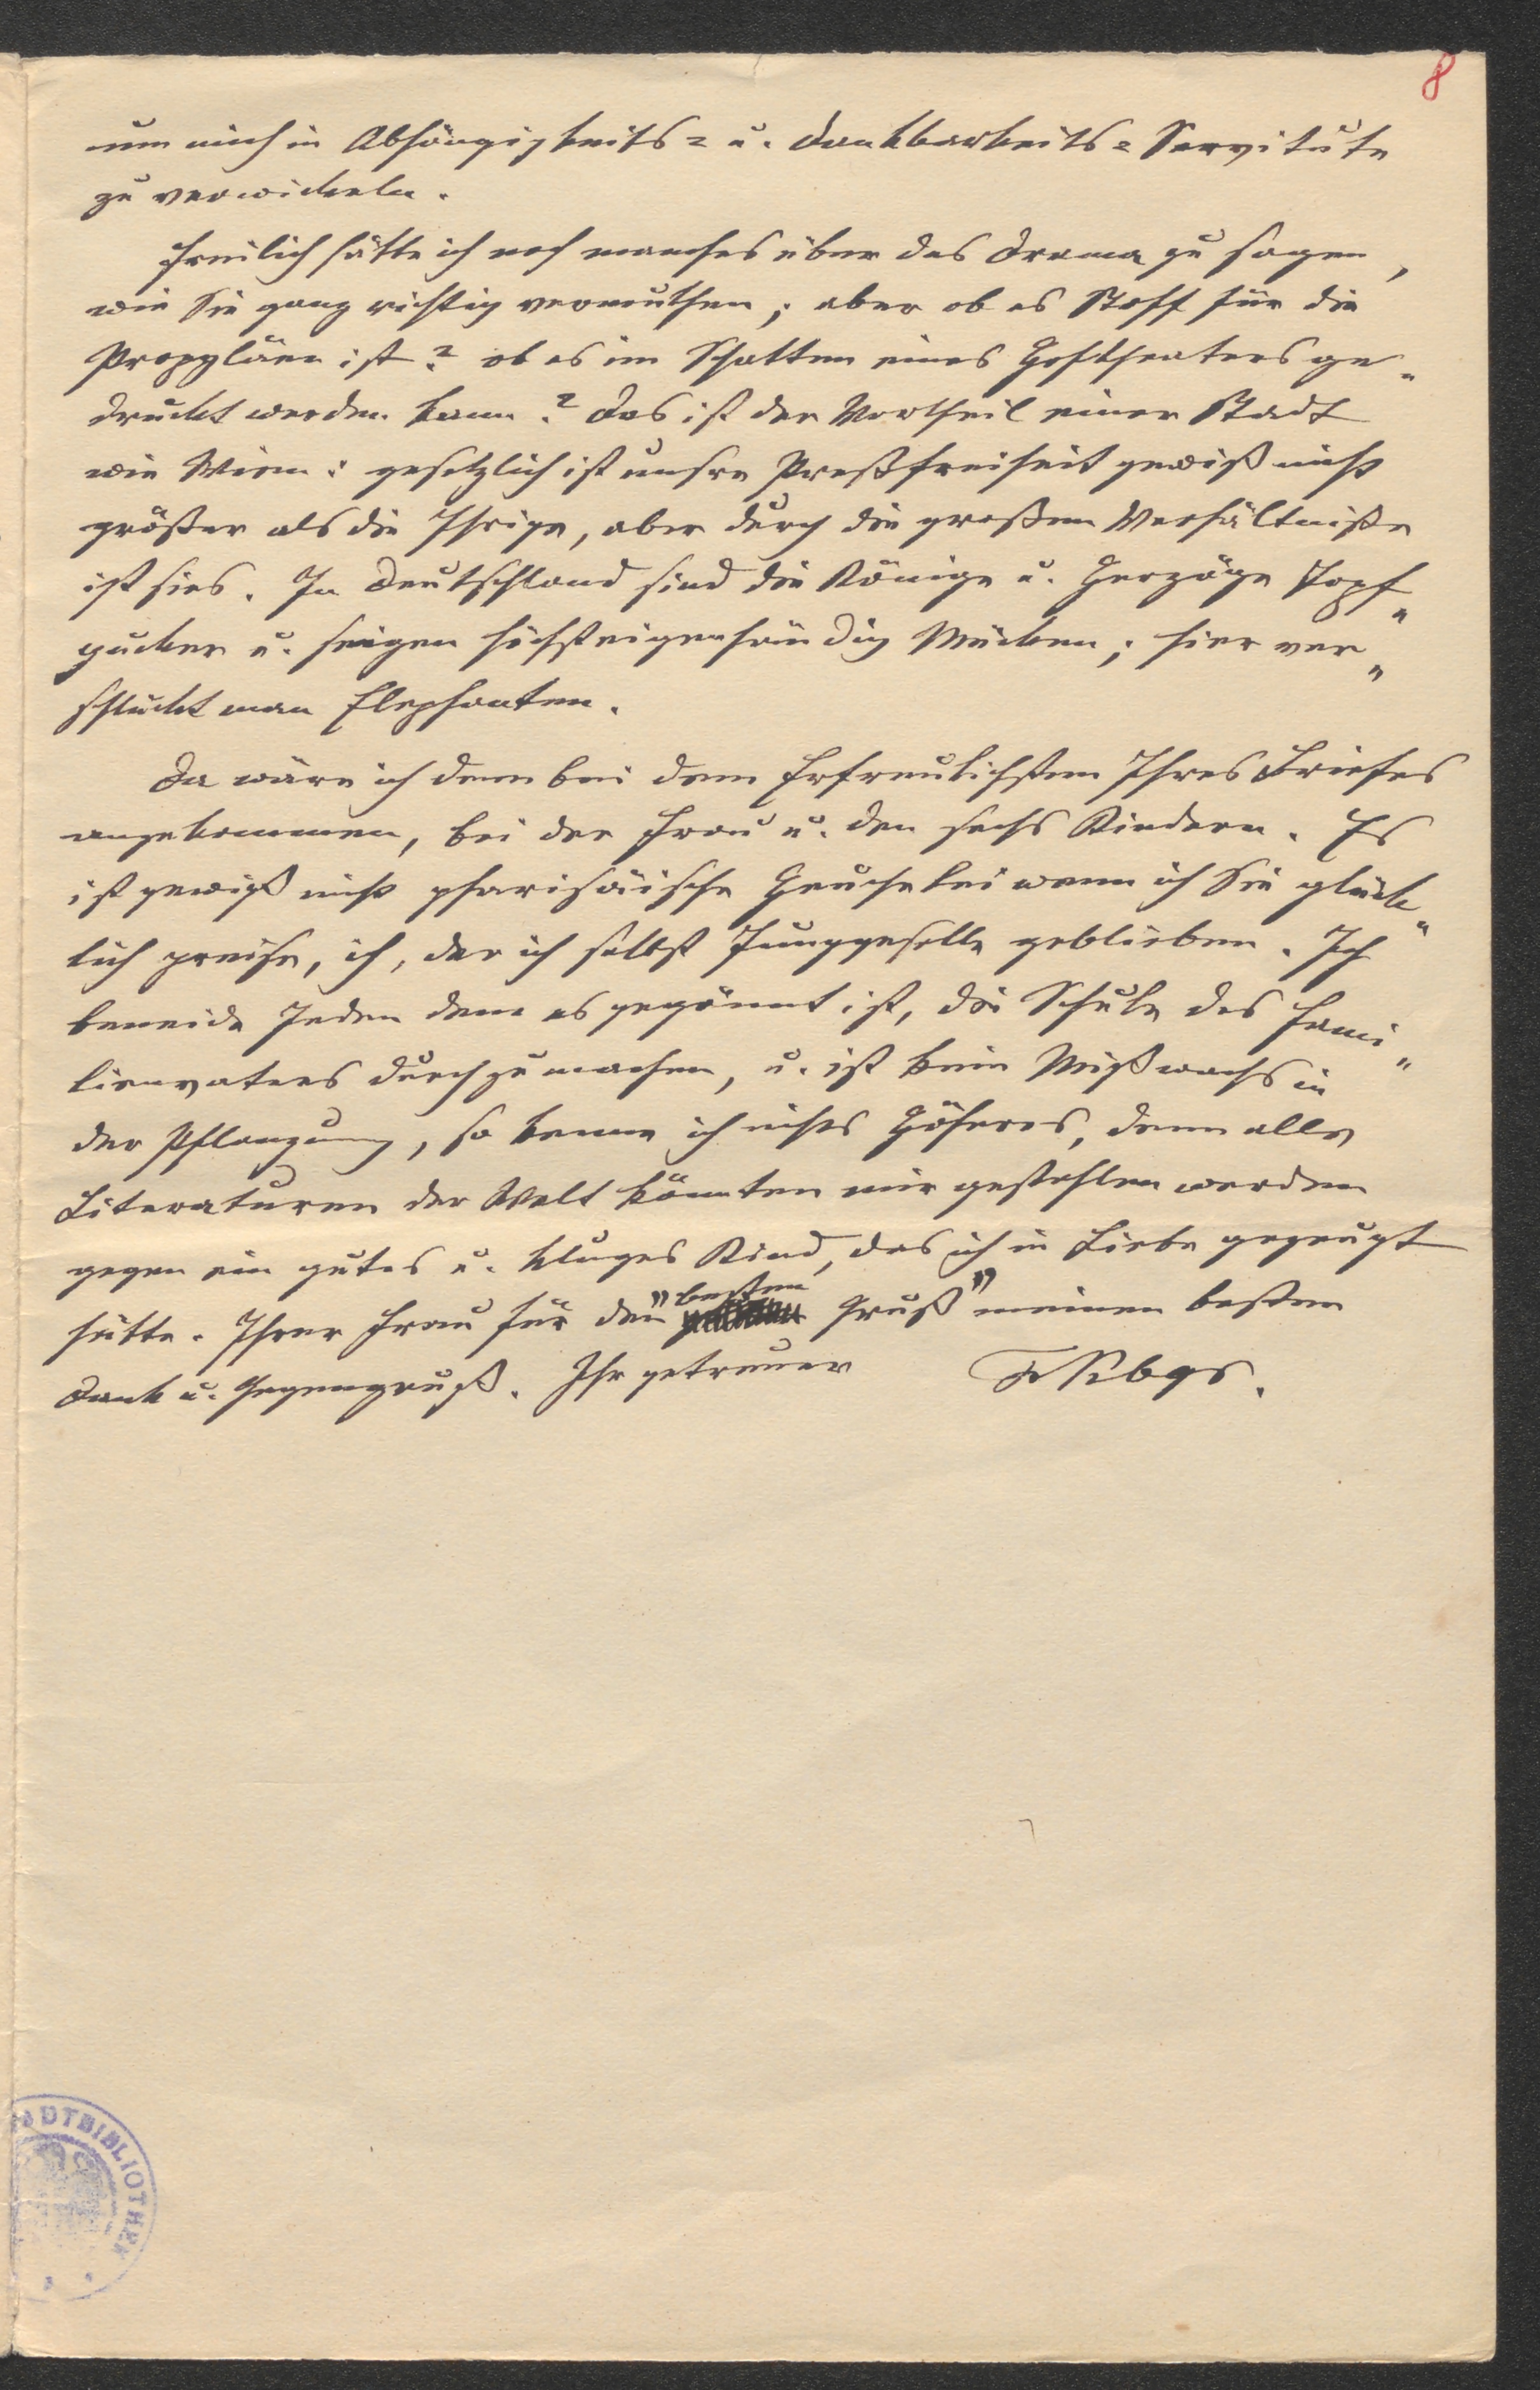 8
um mich in Abhängigkeits- u. Dankbarkeits-Servitute
zu verwickeln.
Freilich hätte ich noch manches über das Drama zu sagen,
wie Sie ganz richtig vermuthen; aber ob es Stoff für die
Propyläen ist? ob es im Schatten eines Hoftheaters ge-
druckt werden kann? Das ist der Vortheil einer Stadt
wie Wien: gesetzlich ist unsre Preßfreiheit gewiß nicht
größer als die Ihrige, aber durch die großen Verhältniße
ist sies. In Deutschland sind die Könige u. Herzöge Topf-
gucker u. seigen höchsteigenhändig Mücken; hier ver-
schluckt man Elephanten.
Da wäre ich denn bei dem Erfreulichsten Ihres Briefes
angekommen, bei der Frau u. den sechs Kindern. Es
ist gewiß nicht pharisäische Heuchelei wenn ich Sie glück-
lich preise, ich, der ich selbst Junggeselle geblieben. Ich
beneide Jeden dem es gegönnt ist, die Schule des Fami-
lienvaters durchzumachen, u. ist kein Mißwachs in
der Pflanzung, so kenne ich nichts Höheres, denn alle
Literaturen der Welt könnten mir gestohlen werden
gegen ein gutes u. kluges Kind, das ich in Liebe gezeugt
hätte. Ihrer Frau für den "besten Gruß" meinen besten
Dank u. Gegengruß. Ihr getreuer FKbgr.
ADTBIBLIOTHEK